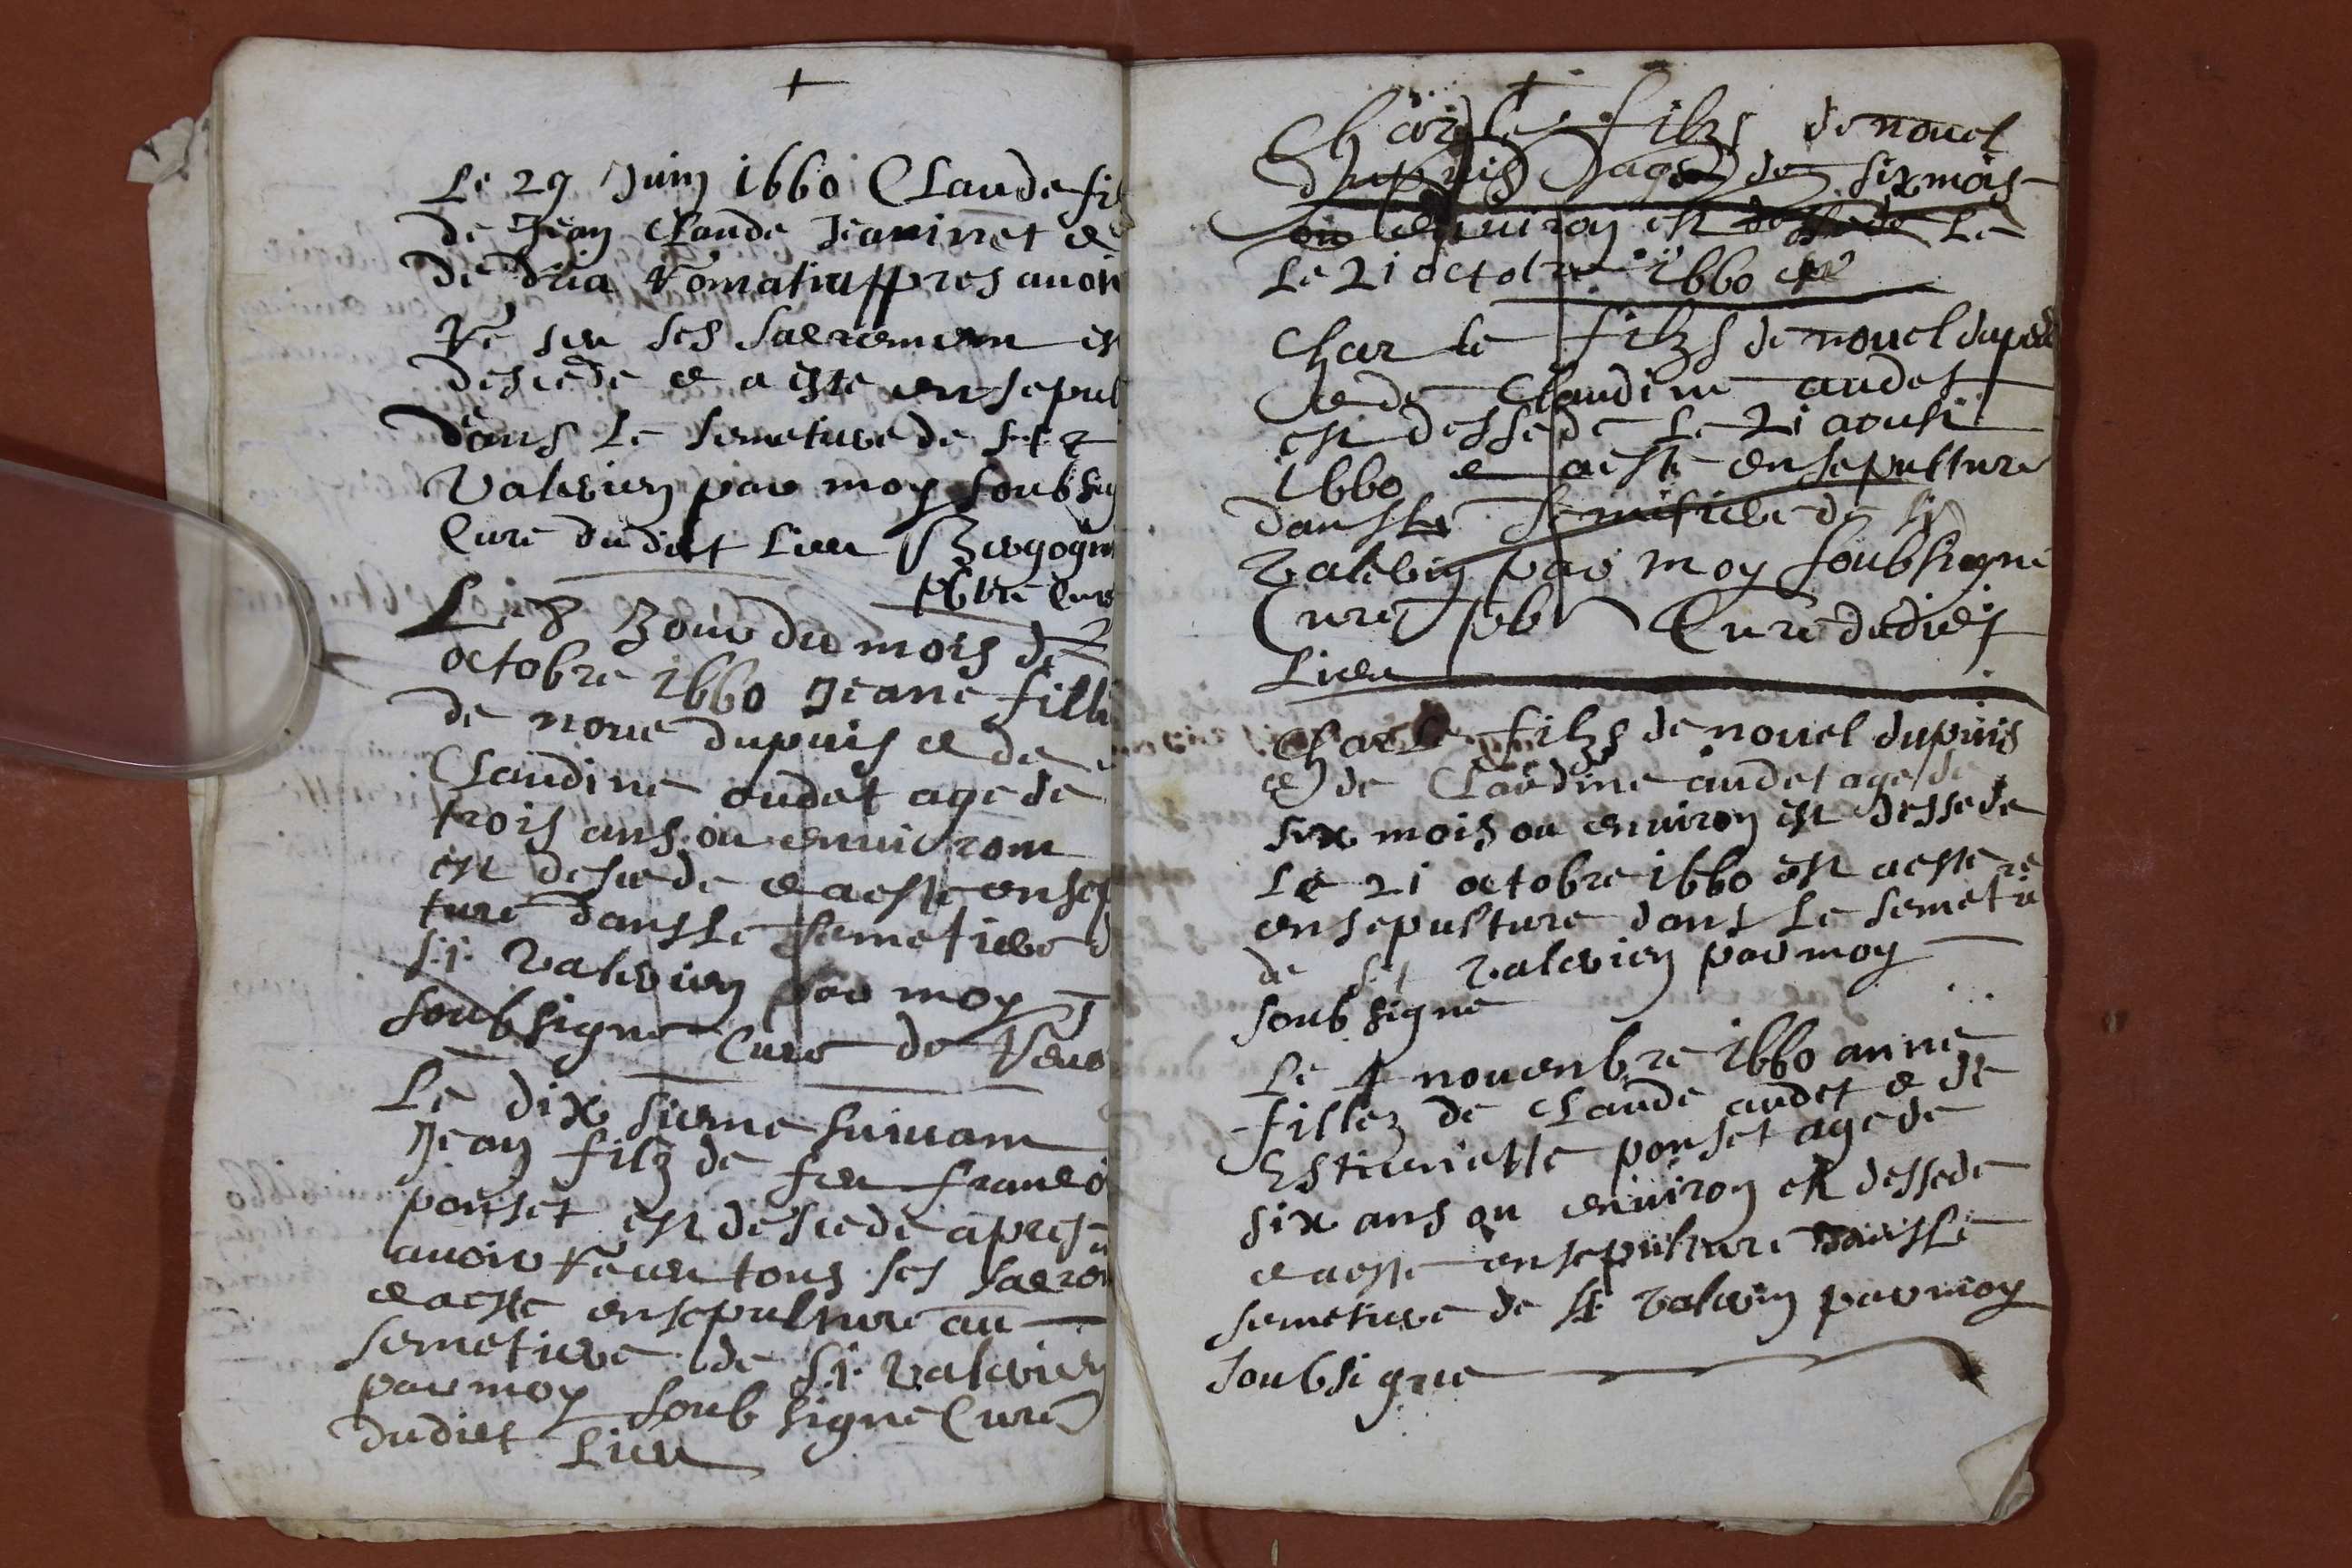 Le 29 Juin 1660 Claude fi
de Jean Claude Jeaninet e
de dria Romatin appres auoir
Re seu ses sacremem est
desede e a este en sepul
dans le semetiere de st
Valerien par moy soubsig
Cure dudict lieu Bergogn
pbre Cure
Le 8 Jour du mois de
octobre 1660 Jeane fille
de noue dupuis e de
Claudine oudet age de
trois ans ou enuirom
est desede e a este ensep
ture dans le semetiere d
st Valerien par moy
soubsigne Cure de
Le dix sieme suiuam
Jean filz de feu franco
ponset est desede apres
auoir Receu tous ses sacre
e a este ensepulture au
semetiere de st Valerien
par moy soub signe Cure
dudict Lieu
Charle filzs de nouel
dupuis age de six mois
ou enuiron est dessede Le
Le 21 octobre 1660
Char le filzs de nouel dupui
e de Claudine audet
est dessede Le 21 aoust
1660 e a este ensepulture
dans le semetiere de st
Valerien par moy soubsigne
Cure pbr Cure dudict
Lieu
Charle filzs de nouel dupuis
e de Claudine audet age de
six mois ou enuiron est dessede
Le 21 octobre 1660 est a este
ensepulture dans le semetie re
de st Valerien par moy
soub signe
Le 4 nouenbre 1660 anne
fillez de Claude audet e de
Estieniette ponset age de
six ans ou enuiron est dessede
e a este ensepulture dans le
semetiere de st Valerien par moy
soubsigne